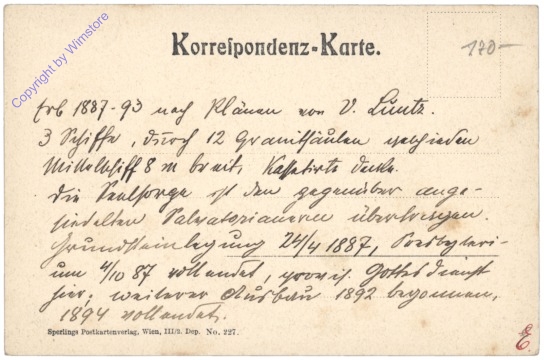 Copyright by Wimstore
Korrespondenz-Karte.
170-
Erb 1887-93 nach Plänen von V. Luntz.
3 Schiffe, durch 12 Granitsäulen geschieden
Mittelschiff 8 m breit, Kassetirte Decke.
Die Seelsorge ist den gegenüber ange-
siedelten Salvatorianern übertragen.
Grundsteinlegung 24/4 1887, Presbyteri-
um 4/10 87 vollendet, provis. Gottesdienst
hier; weiterer Ausbau 1892 begonnen,
1894 vollendet.
Sperlings Postkartenverlag, Wien, III/2. Dep. No. 227.
E